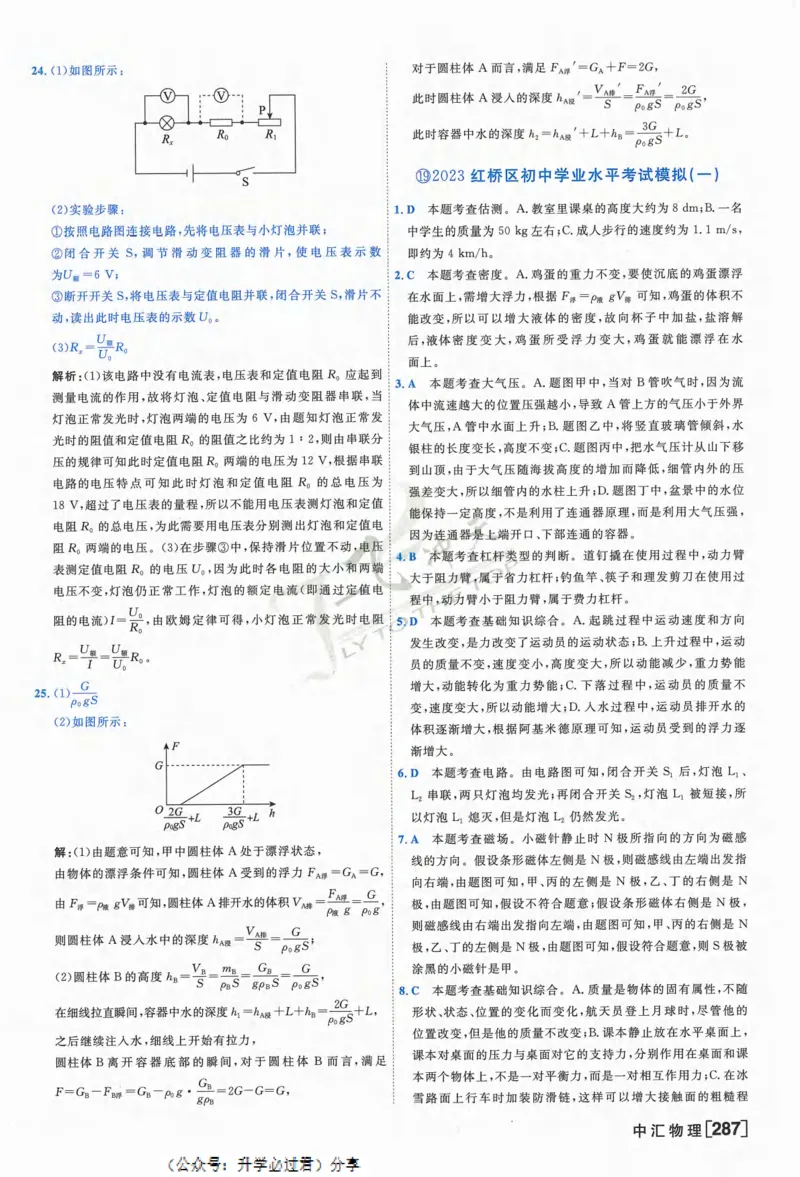 24. (1)如图所示:
V
V
P
Rₓ
R₀
R₁
S
(2)实验步骤:
①按照电路图连接电路,先将电压表与小灯泡并联;
②闭合开关 S,调节滑动变阻器的滑片,使电压表示数
为U额=6 V;
③断开开关 S,将电压表与定值电阻并联,闭合开关 S,滑片不
动,读出此时电压表的示数 U₀。
(3)Rₓ=U额/U₀ R₀
解析:(1)该电路中没有电流表,电压表和定值电阻 R₀ 应起到
测量电流的作用,故将灯泡、定值电阻与滑动变阻器串联,当
灯泡正常发光时,灯泡两端的电压为 6 V,由题知灯泡正常发
光时的阻值和定值电阻 R₀ 的阻值之比约为 1∶2,则由串联分
压的规律可知此时定值电阻 R₀ 两端的电压为 12 V,根据串联
电路的电压特点可知此时灯泡和定值电阻 R₀ 的总电压为
18 V,超过了电压表的量程,所以不能用电压表测灯泡和定值
电阻 R₀ 的总电压,为此需要用电压表分别测出灯泡和定值电
阻 R₀ 两端的电压。(3)在步骤③中,保持滑片位置不动,电压
表测定值电阻 R₀ 的电压 U₀,因为此时各电阻的大小和两端
电压不变,灯泡仍正常工作,灯泡的额定电流(即通过定值电
阻的电流)I=U₀/R₀,由欧姆定律可得,小灯泡正常发光时电阻
Rₓ=U额/I=U额/U₀ R₀。
25. (1)G/ρ₀gS
(2)如图所示:
F
G
O 2G/ρ₀gS+L 3G/ρ₀gS+L h
解:(1)由题意可知,甲中圆柱体 A 处于漂浮状态,
由物体的漂浮条件可知,圆柱体 A 受到的浮力 FA浮=GA=G,
由 F浮=ρ液 gV排可知,圆柱体 A 排开水的体积 VA排=FA浮/ρ液 g=G/ρ₀g,
则圆柱体 A 浸入水中的深度 hA浸=VA排/S=G/ρ₀gS;
(2)圆柱体 B 的高度 hB=VB/S=mB/ρBS=GB/gρBS=G/ρ₀gS,
在细线拉直瞬间,容器中水的深度 h₁=hA浸+L+hB=2G/ρ₀gS+L,
之后继续注入水,细线上开始有拉力,
圆柱体 B 离开容器底部的瞬间,对于圆柱体 B 而言,满足
F=GB-FB浮=GB-ρ₀g·GB/gρB=2G-G=G,
对于圆柱体 A 而言,满足 FA浮′=GA+F=2G,
此时圆柱体 A 浸入的深度 hA浸′=VA排′/S=FA浮′/ρ₀gS=2G/ρ₀gS,
此时容器中水的深度 h₂=hA浸′+L+hB=3G/ρ₀gS+L。
⑲2023 红桥区初中学业水平考试模拟(一)
1. D 本题考查估测。A. 教室里课桌的高度大约为 8 dm;B. 一名
中学生的质量为 50 kg 左右;C. 成人步行的速度约为 1.1 m/s,
即约为 4 km/h。
2. C 本题考查密度。A. 鸡蛋的重力不变,要使沉底的鸡蛋漂浮
在水面上,需增大浮力,根据 F浮=ρ液 gV排 可知,鸡蛋的体积不
能改变,所以可以增大液体的密度,故向杯子中加盐,盐溶解
后,液体密度变大,鸡蛋所受浮力变大,鸡蛋就能漂浮在水
面上。
3. A 本题考查大气压。A. 题图甲中,当对 B 管吹气时,因为流
体中流速越大的位置压强越小,导致 A 管上方的气压小于外界
大气压,A 管中水面上升;B. 题图乙中,将竖直玻璃管倾斜,水
银柱的长度变长,高度不变;C. 题图丙中,把水气压计从山下移
到山顶,由于大气压随海拔高度的增加而降低,细管内外的压
强差变大,所以细管内的水柱上升;D. 题图丁中,盆景中的水位
能保持一定高度,不是利用了连通器原理,而是利用大气压强,
因为连通器是上端开口、下部连通的容器。
4. B 本题考查杠杆类型的判断。道钉撬在使用过程中,动力臂
大于阻力臂,属于省力杠杆;钓鱼竿、筷子和理发剪刀在使用过
程中,动力臂小于阻力臂,属于费力杠杆。
5. D 本题考查基础知识综合。A. 起跳过程中运动速度和方向
发生改变,是力改变了运动员的运动状态;B. 上升过程中,运动
员的质量不变,速度变小,高度变大,所以动能减少,重力势能
增大,动能转化为重力势能;C. 下落过程中,运动员的质量不
变,速度变大,所以动能增大;D. 入水过程中,运动员排开水的
体积逐渐增大,根据阿基米德原理可知,运动员受到的浮力逐
渐增大。
6. D 本题考查电路。由电路图可知,闭合开关 S₁ 后,灯泡 L₁、
L₂ 串联,两只灯泡均发光;再闭合开关 S₂,灯泡 L₁ 被短接,所
以灯泡 L₁ 熄灭,但是灯泡 L₂ 仍然发光。
7. A 本题考查磁场。小磁针静止时 N 极所指向的方向为磁感
线的方向。假设条形磁体左侧是 N 极,则磁感线由左端出发指
向右端,由题图可知,甲、丙的左侧是 N 极,乙、丁的右侧是 N
极,由题图可知,假设不符合题意;假设条形磁体右侧是 N 极,
则磁感线由右端出发指向左端,由题图可知,甲、丙的右侧是 N
极,乙、丁的左侧是 N 极,由题图可知,假设符合题意,则 S 极被
涂黑的小磁针是甲。
8. C 本题考查基础知识综合。A. 质量是物体的固有属性,不随
形状、状态、位置的变化而变化,航天员登上月球时,尽管他的
位置改变,但是他的质量不改变;B. 课本静止放在水平桌面上,
课本对桌面的压力与桌面对它的支持力,分别作用在桌面和课
本两个物体上,不是一对平衡力,而是一对相互作用力;C. 在冰
雪路面上行车时加装防滑链,这样可以增大接触面的粗糙程
中汇物理[287]
(公众号:升学必过君)分享